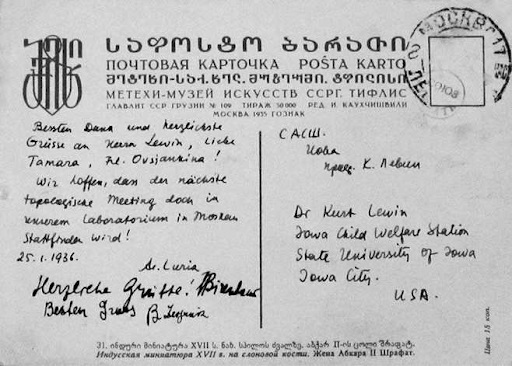 ᲡᲐᲤᲝᲡᲢᲝ ᲑᲐᲠᲐᲗᲘ
ПОЧТОВАЯ КАРТОЧКА POŜTA KARTO
МЕТЕХИ-МУЗЕЙ ИСКУССТВ ССРГ. ТИФЛИС
ГЛАВЛИТ ССР ГРУЗИИ № 109 ТИРАЖ 50000 РЕД. И. КАУХЧИШВИЛИ
МОСКВА 1935 ГОЗНАК
МОСКВА 17
Besten Dank und herzlichste
Grüsse an Herrn Lewin, liebe
Tamara, Frl. Ovsjankina!
Wir hoffen, dass der nächste
topologische Meeting doch in
unserem Laboratorium in Moskau
Stattfinden wird!
25.1.1936.
Luria
Herzliche Grüsse!
Besten Gruss B. Zeigarnik
САСШ.
Иова
проф. К. Левин
Dr Kurt Lewin
Iowa Child Welfare Station
State University of Iowa
Iowa City.
USA.
31. ინდური მინიატურა XVII ს. ნახ. სპილოს ძვალზე. აბქარ II-ის ცოლი შრაფატ.
Индусская миниатюра XVII в. на слоновой кости. Жена Абкара II Шрафат.
Цена 15 коп.